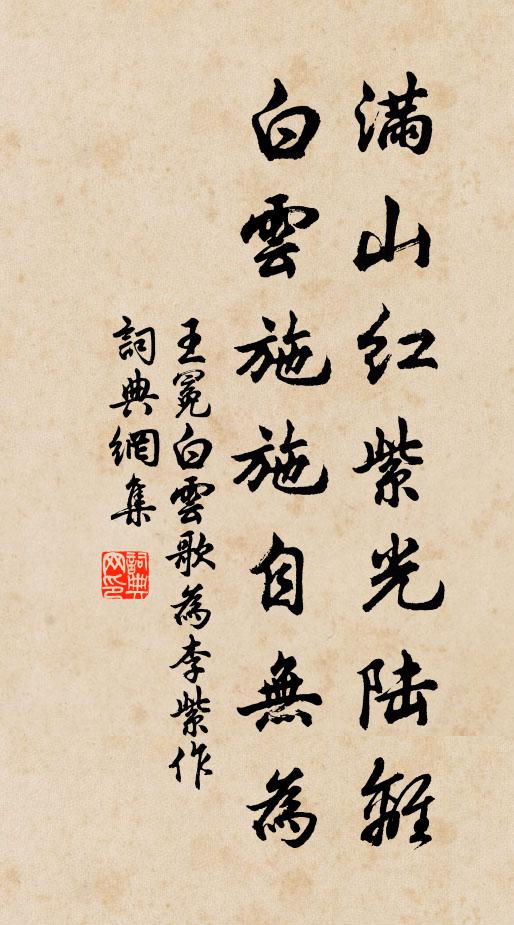 滿山紅紫光陸離
白雲施施自無為
王冕白雲歌為李紫作
詞典網集
詞典网印